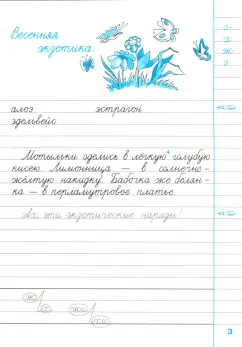 Весенняя
экзотика.
э-
х
ж
э
алоэ эстрагон
эдельвейс
Мотыльки оделись в лёгкую голубую
кисею. Лимонница — в солнечно-
жёлтую накидку. Бабочка же белян-
ка — в перламутровое платье.
Ах, эти экзотические наряды!
ж
х жи
хи
3